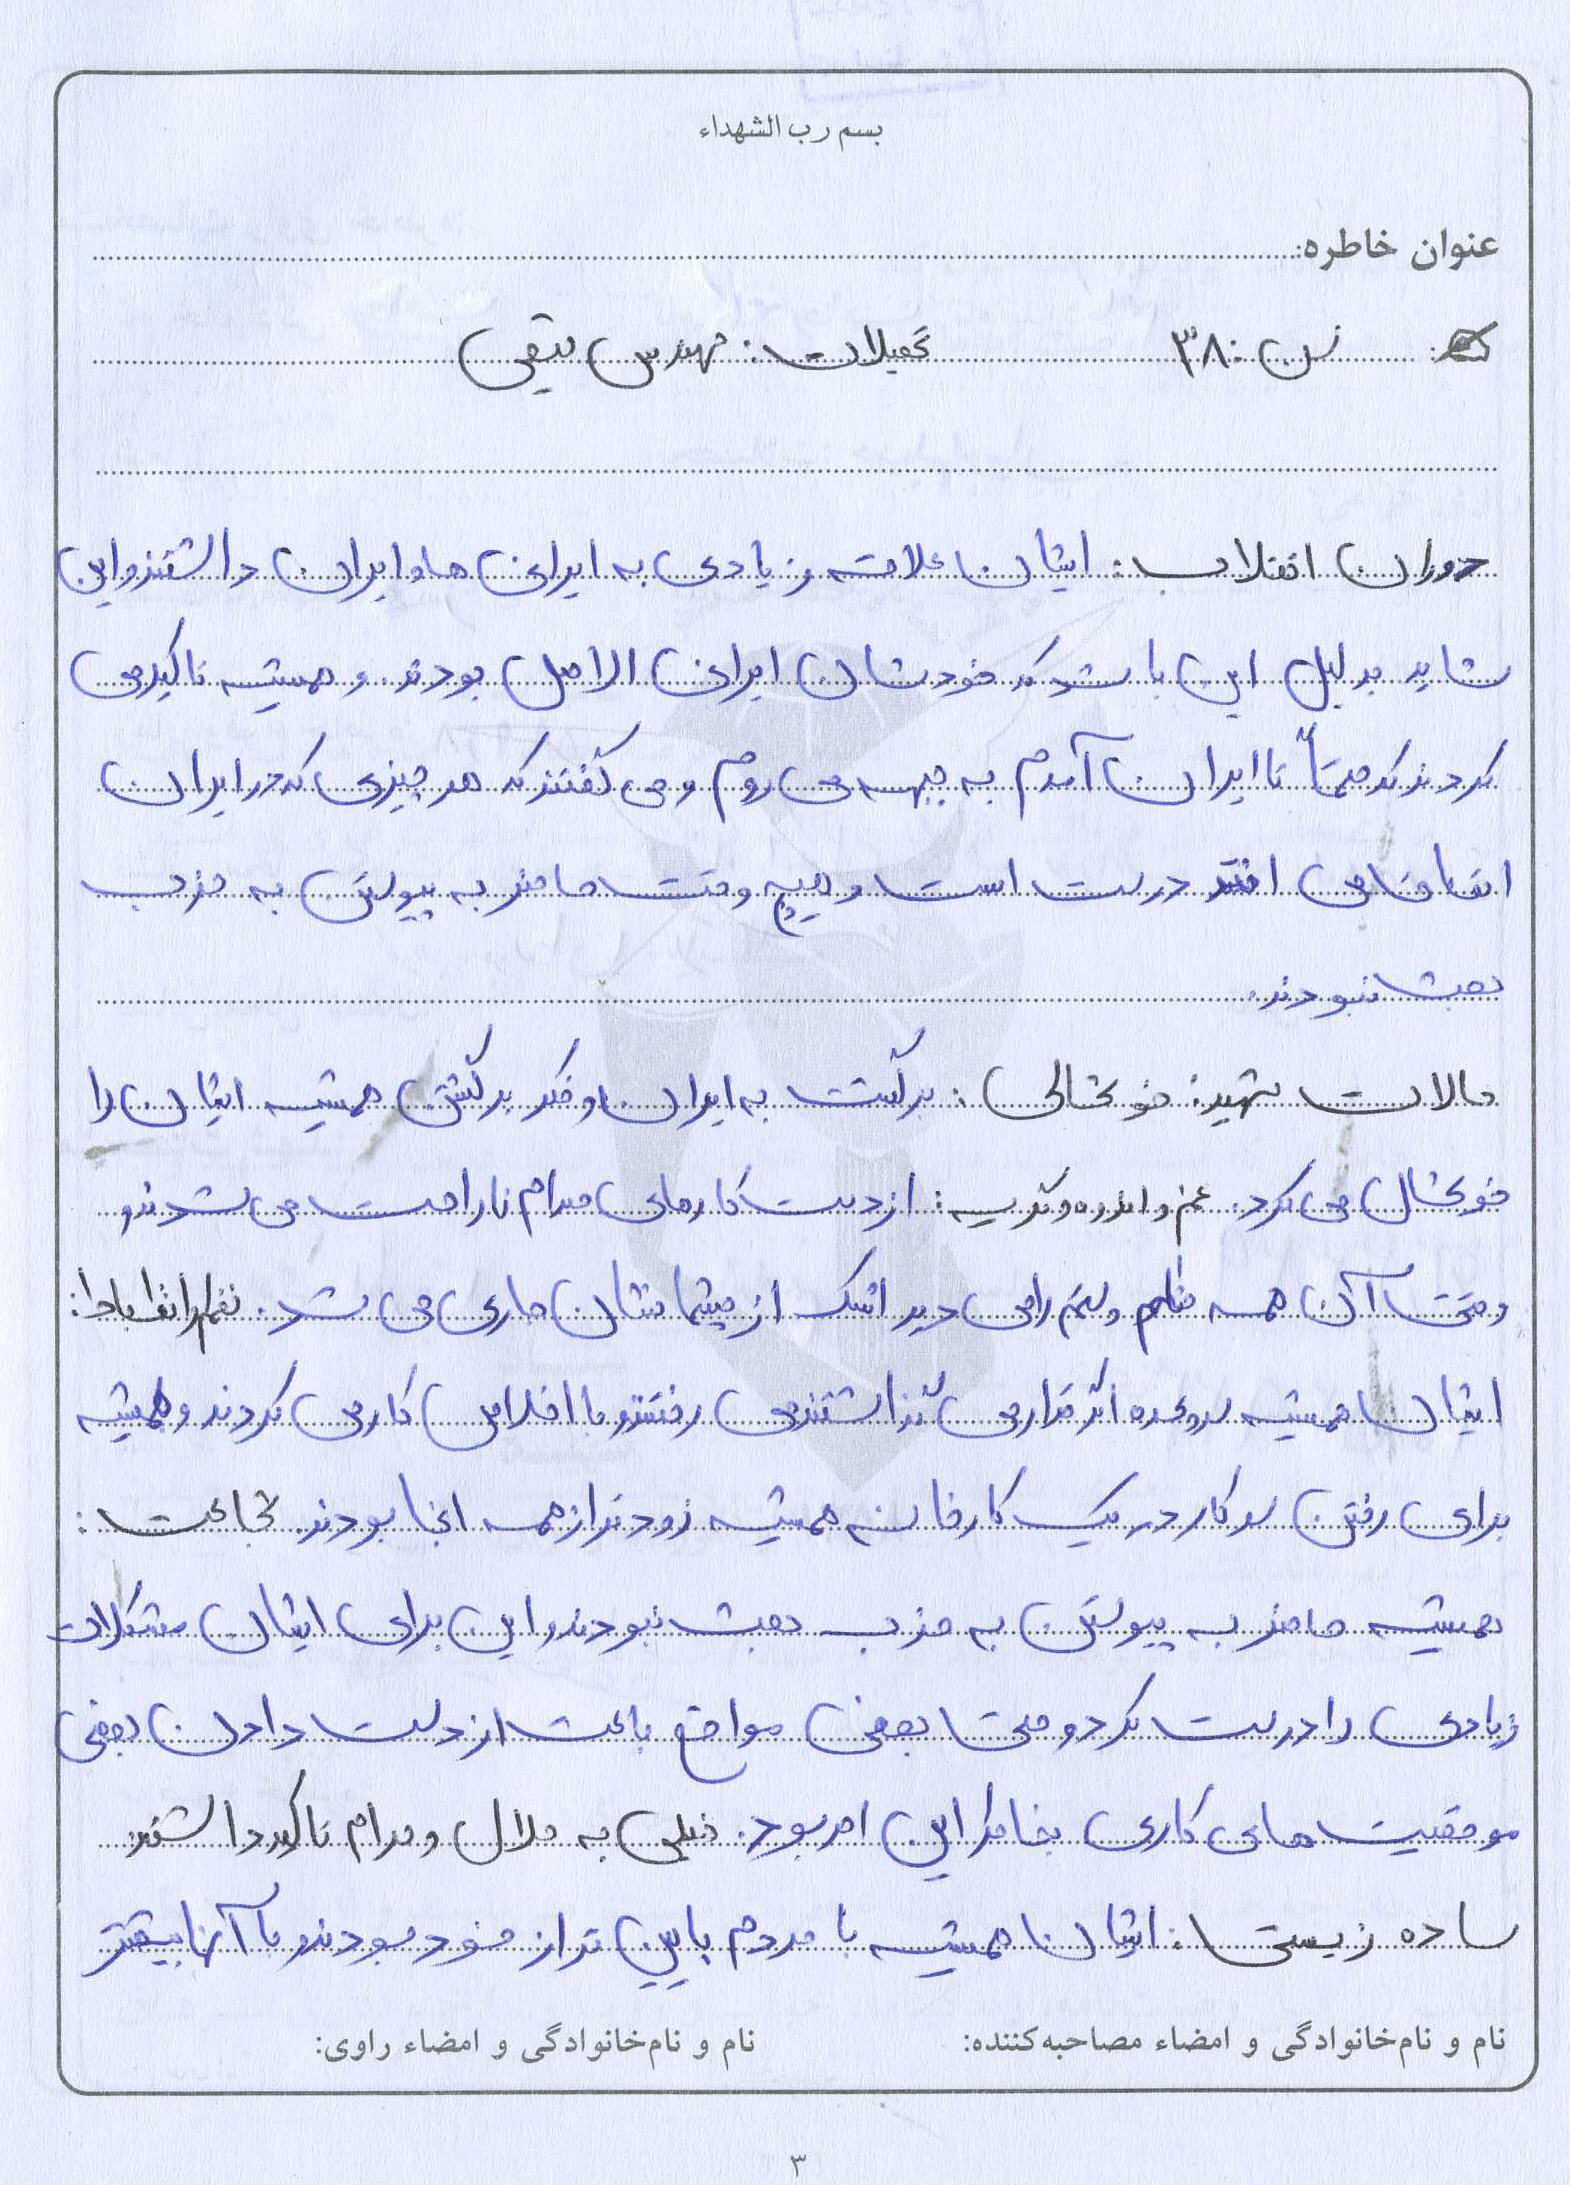 بسم رب الشهداء
عنوان خاطره:
سن: ۳۸ تحصیلات: مهندس
دوران انقلاب: ایشان علاقه زیادی به ایرانی ها و ایران داشتند و این
شاید بدلیل این باشد که خودشان ایرانی الاصل بودند. و همیشه تاکید می
کردند که حتماً تا ایران آمدم به جبهه می روم و می گفتند که هر چیزی که در ایران
اتفاق می افتد درست است و هیچ وقت حاضر به پیوستن به حزب
بعث نبودند.
حالات شهید: خوشحالی: برگشت به ایران و فکر برگشتن همیشه ایشان را
خوشحال می کرد. غم و اندوه و گریه: از دست کارهای صدام ناراحت می شدند و
وقتی آن همه ظلم و ستم را می دید اشک از چشمانشان جاری می شد. نظم و انضباط:
ایشان همیشه سر وعده اگر قرار می گذاشتند می رفتند و با اخلاص کار می کردند و همیشه
برای رفتن سر کار در یک کارخانه همیشه زودتر از همه آنجا بودند. شجاعت:
همیشه حاضر به پیوستن به حزب بعث نبودند و این برای ایشان مشکلات
زیادی را درست کرد و حتی بعضی مواقع باعث از دست دادن بعضی
موقعیت های کاری بخاطر این امر بود. خیلی به حلال و حرام تاکید داشتند.
ساده زیستی: ایشان همیشه با مردم پایین تر از خود بودند و با آنها بیشتر
نام و نام‌خانوادگی و امضاء مصاحبه‌کننده: نام و نام‌خانوادگی و امضاء راوی:
۳